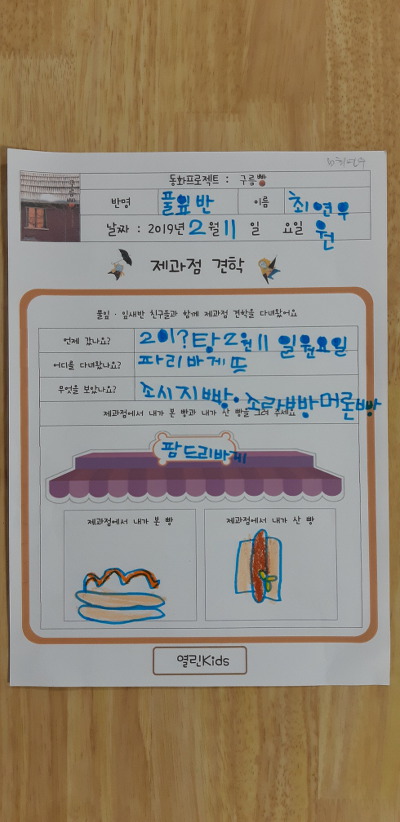 최연우
동화프로젝트 : 구름빵
반명 풀잎반 이름 최연우
날짜 : 2019년 2월 11 일 요일 월
제과점 견학
풀잎 · 잎새반 친구들과 함께 제과점 견학을 다녀왔어요
언제 갔나요? 2019탕 2원11 일월요일
어디를 다녀왔나요? 파리바게뜨
무엇을 보았나요? 소시지빵· 소라빵머론빵
제과점에서 내가 본 빵과 내가 산 빵을 그려 주세요
팜드리바게
제과점에서 내가 본 빵 제과점에서 내가 산 빵
열린Kids